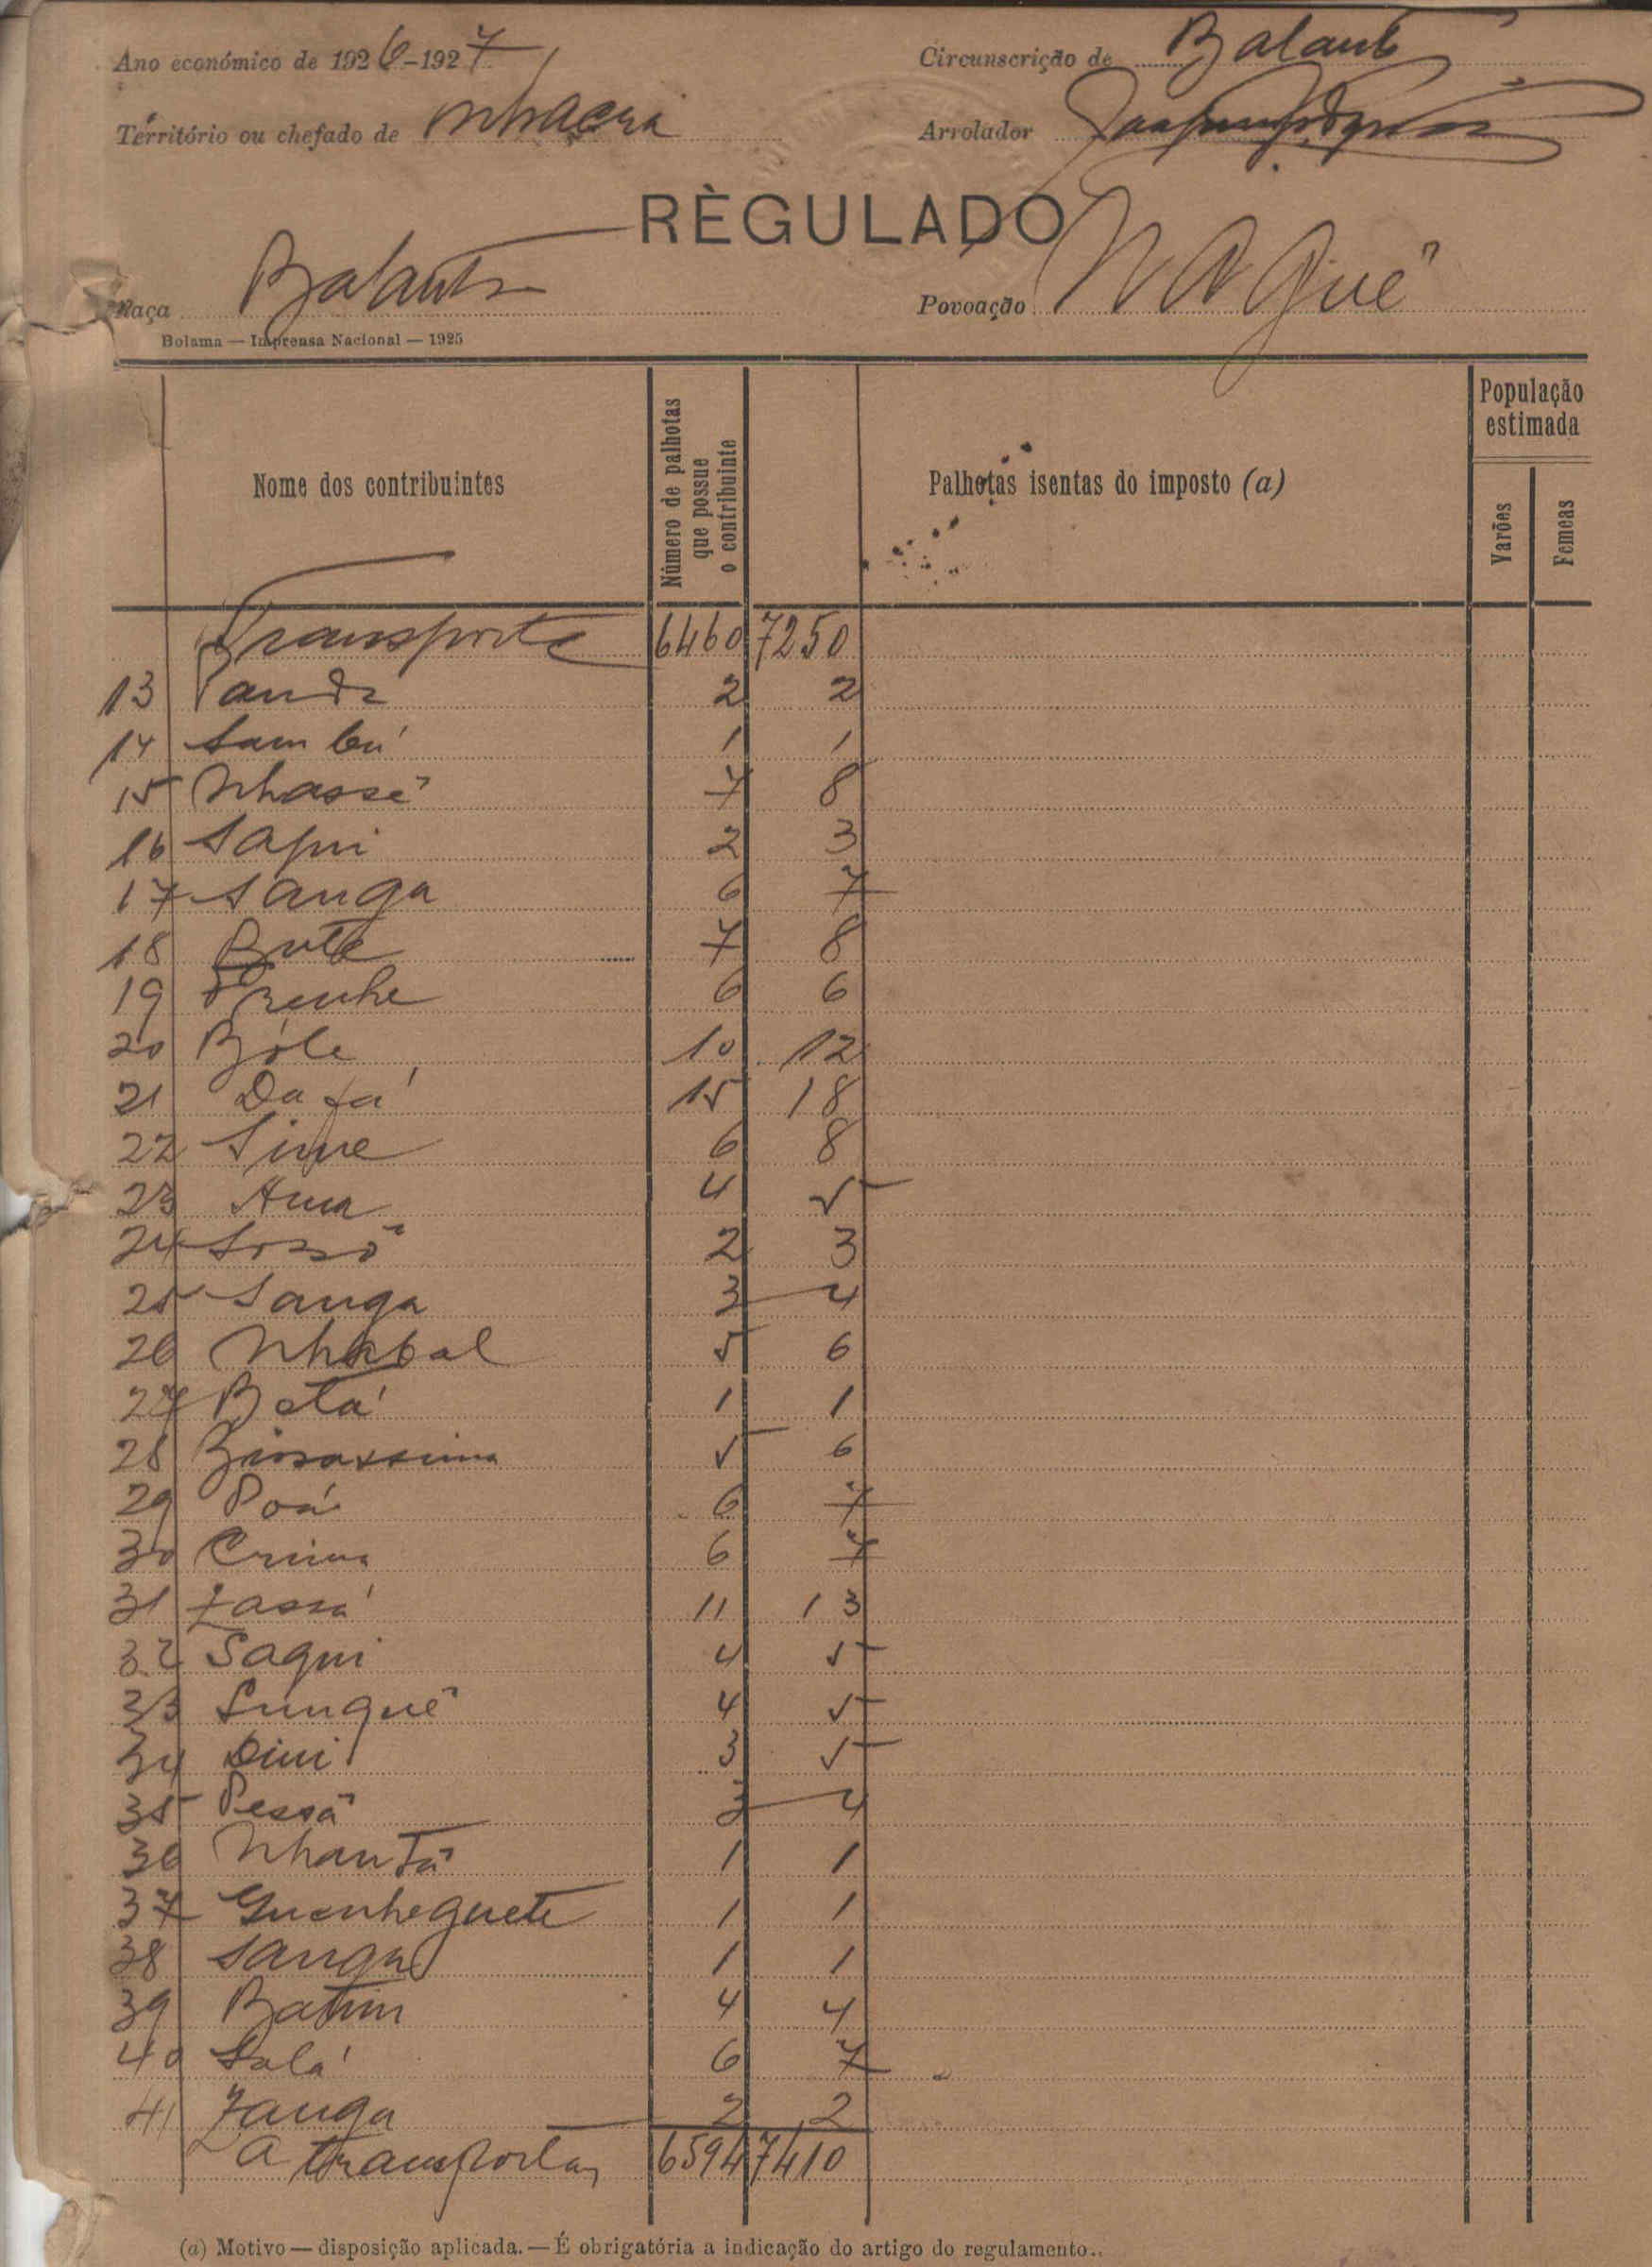 Ano económico de 1926-1927 Circunscrição de Balanta
Território ou chefado de Nhacra Arrolador
RÈGULADO
Raça Balanta Povoação
Bolama — Imprensa Nacional — 1925
Nome dos contribuintes Número de palhotas que possue o contribuinte Palhotas isentas do imposto (a) População estimada Varões Femeas
Transporte 6460 7250
13 2 2
14 Sambú 1 1
15 Nhassê 7 8
16 Sapui 2 3
17 Sanga 6 7
18 Bute 7 8
19 6 6
20 Bóle 10 12
21 Da fá 15 18
22 Sime 6 8
23 Ama 4 5
24 2 3
25 Sanga 3 4
26 Nhabal 5 6
27 Botá 1 1
28 5 6
29 Poá 6 7
30 6 7
31 11 13
32 Saqui 4 5
33 Sunguê 4 5
34 Dini 3 5
35 Pessã 3 4
36 Nhantã 1 1
37 Guenheguete 1 1
38 Sanga 1 1
39 Batim 4 4
40 Salá 6 7
41 Zanga 2 2
A transportar 6594 7410
(a) Motivo — disposição aplicada. — É obrigatória a indicação do artigo do regulamento..